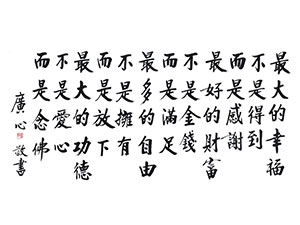 最大的幸福
不是得到
而是感謝
最好的財富
不是金錢
而是滿足
最多的自由
不是擁有
而是放下
最大的功德
不是愛心
而是念佛
廣心敬書